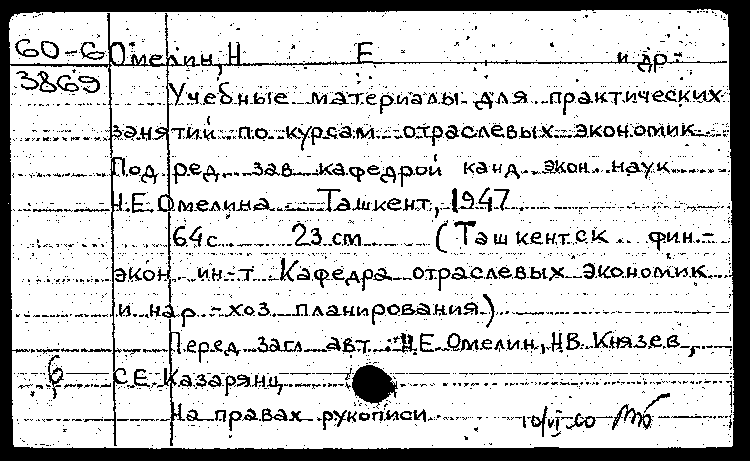 60-6 Омелин, Н Е и др.
3869
Учебные материалы для практических
занятий по курсам отраслевых экономик
Под ред. зав кафедрой канд экон. наук
Н.Е. Омелина Ташкент, 1947
64с 23 см (Ташкентск фин.-
экон. ин-т Кафедра отраслевых экономик
и нар.-хоз. планирования)
Перед загл авт.: Н.Е. Омелин, Н.В. Князев,
6 С.Е. Казарянц
На правах рукописи 10/VI-60